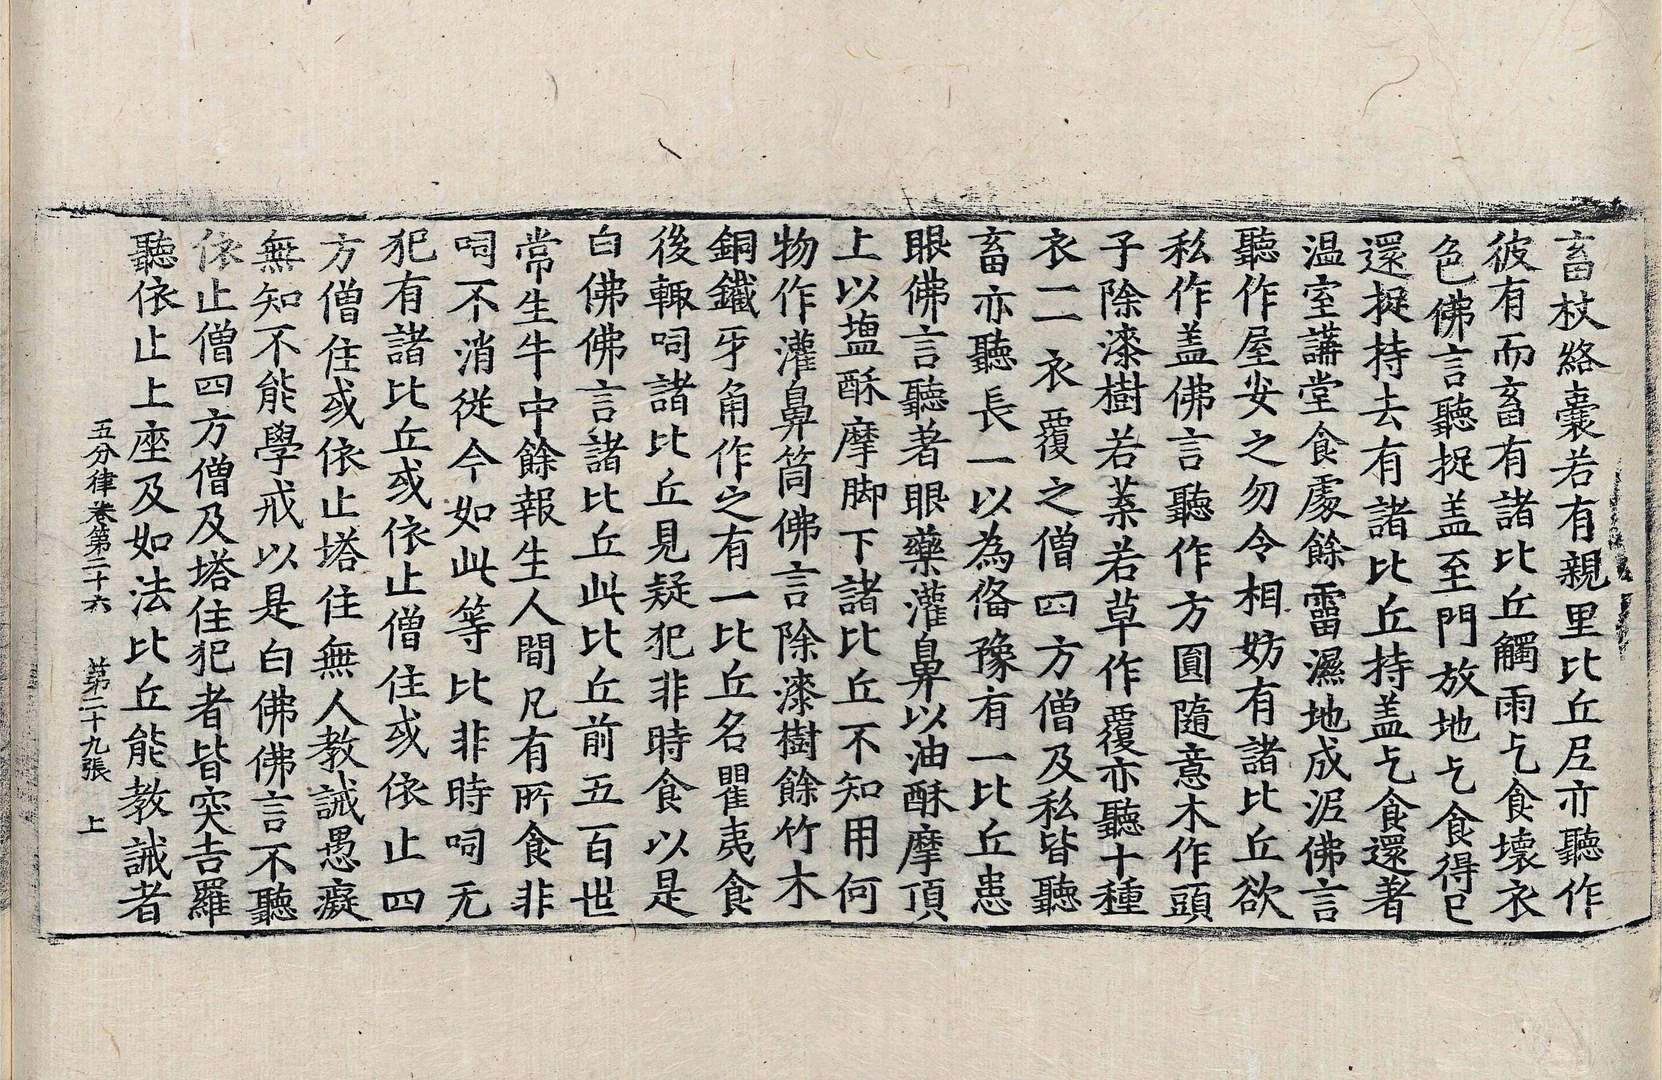 畜杖絡囊若有親里比丘尼亦聽作
彼有而畜有諸比丘觸雨乞食壞衣
色佛言聽捉盖至門放地乞食得已
還捉持去有諸比丘持盖乞食還著
温室講堂食處餘霤濕地成泥佛言
聽作屋安之勿令相妨有諸比丘欲
私作盖佛言聽作方圓隨意木作頭
子除漆樹若葉若草作覆亦聽十種
衣二衣覆之僧四方僧及私皆聽
畜亦聽長一以為俻豫有一比丘患
眼佛言聽著眼藥灌鼻以油酥摩頂
上以塩酥摩脚下諸比丘不知用何
物作灌鼻筒佛言除漆樹餘竹木
銅鐵牙角作之有一比丘名瞿夷食
後輙呞諸比丘見疑犯非時食以是
白佛佛言諸比丘此比丘前五百世
常生牛中餘報生人間凡有所食非
呞不消從今如此等比非時呞无
犯有諸比丘或依止僧住或依止四
方僧住或依止塔住無人教誡愚癡
無知不能學戒以是白佛佛言不聽
依止僧四方僧及塔住犯者皆突吉羅
聽依止上座及如法比丘能教誡者
五分律卷第二十六 第二十九張 上